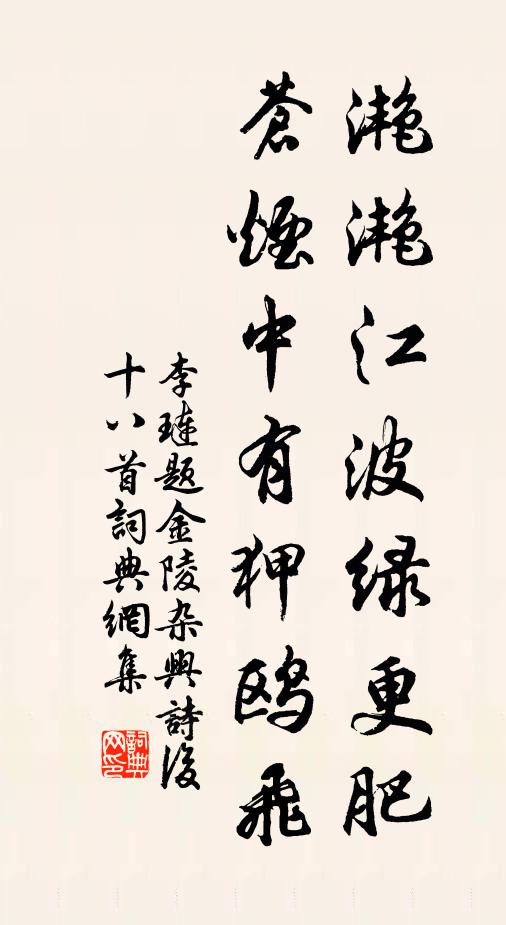 滟滟江波绿更肥
苍烟中有狎鸥飞
李琏题金陵杂兴诗后
十八首词典网集
词典网印